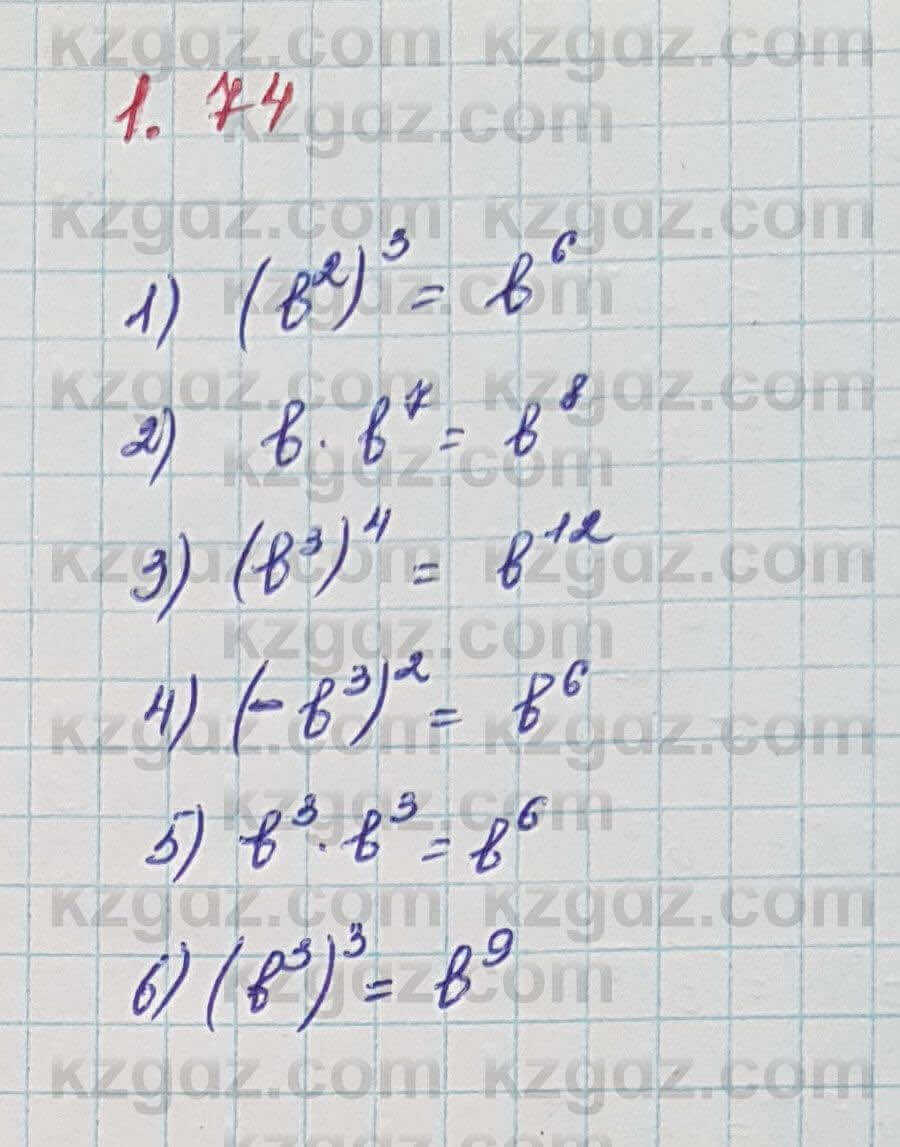 1. 74
1) (b²)³ = b⁶
2) b · b⁷ = b⁸
3) (b³)⁴ = b¹²
4) (-b³)² = b⁶
5) b³ · b³ = b⁶
6) (b³)³ = b⁹
kzgaz.com